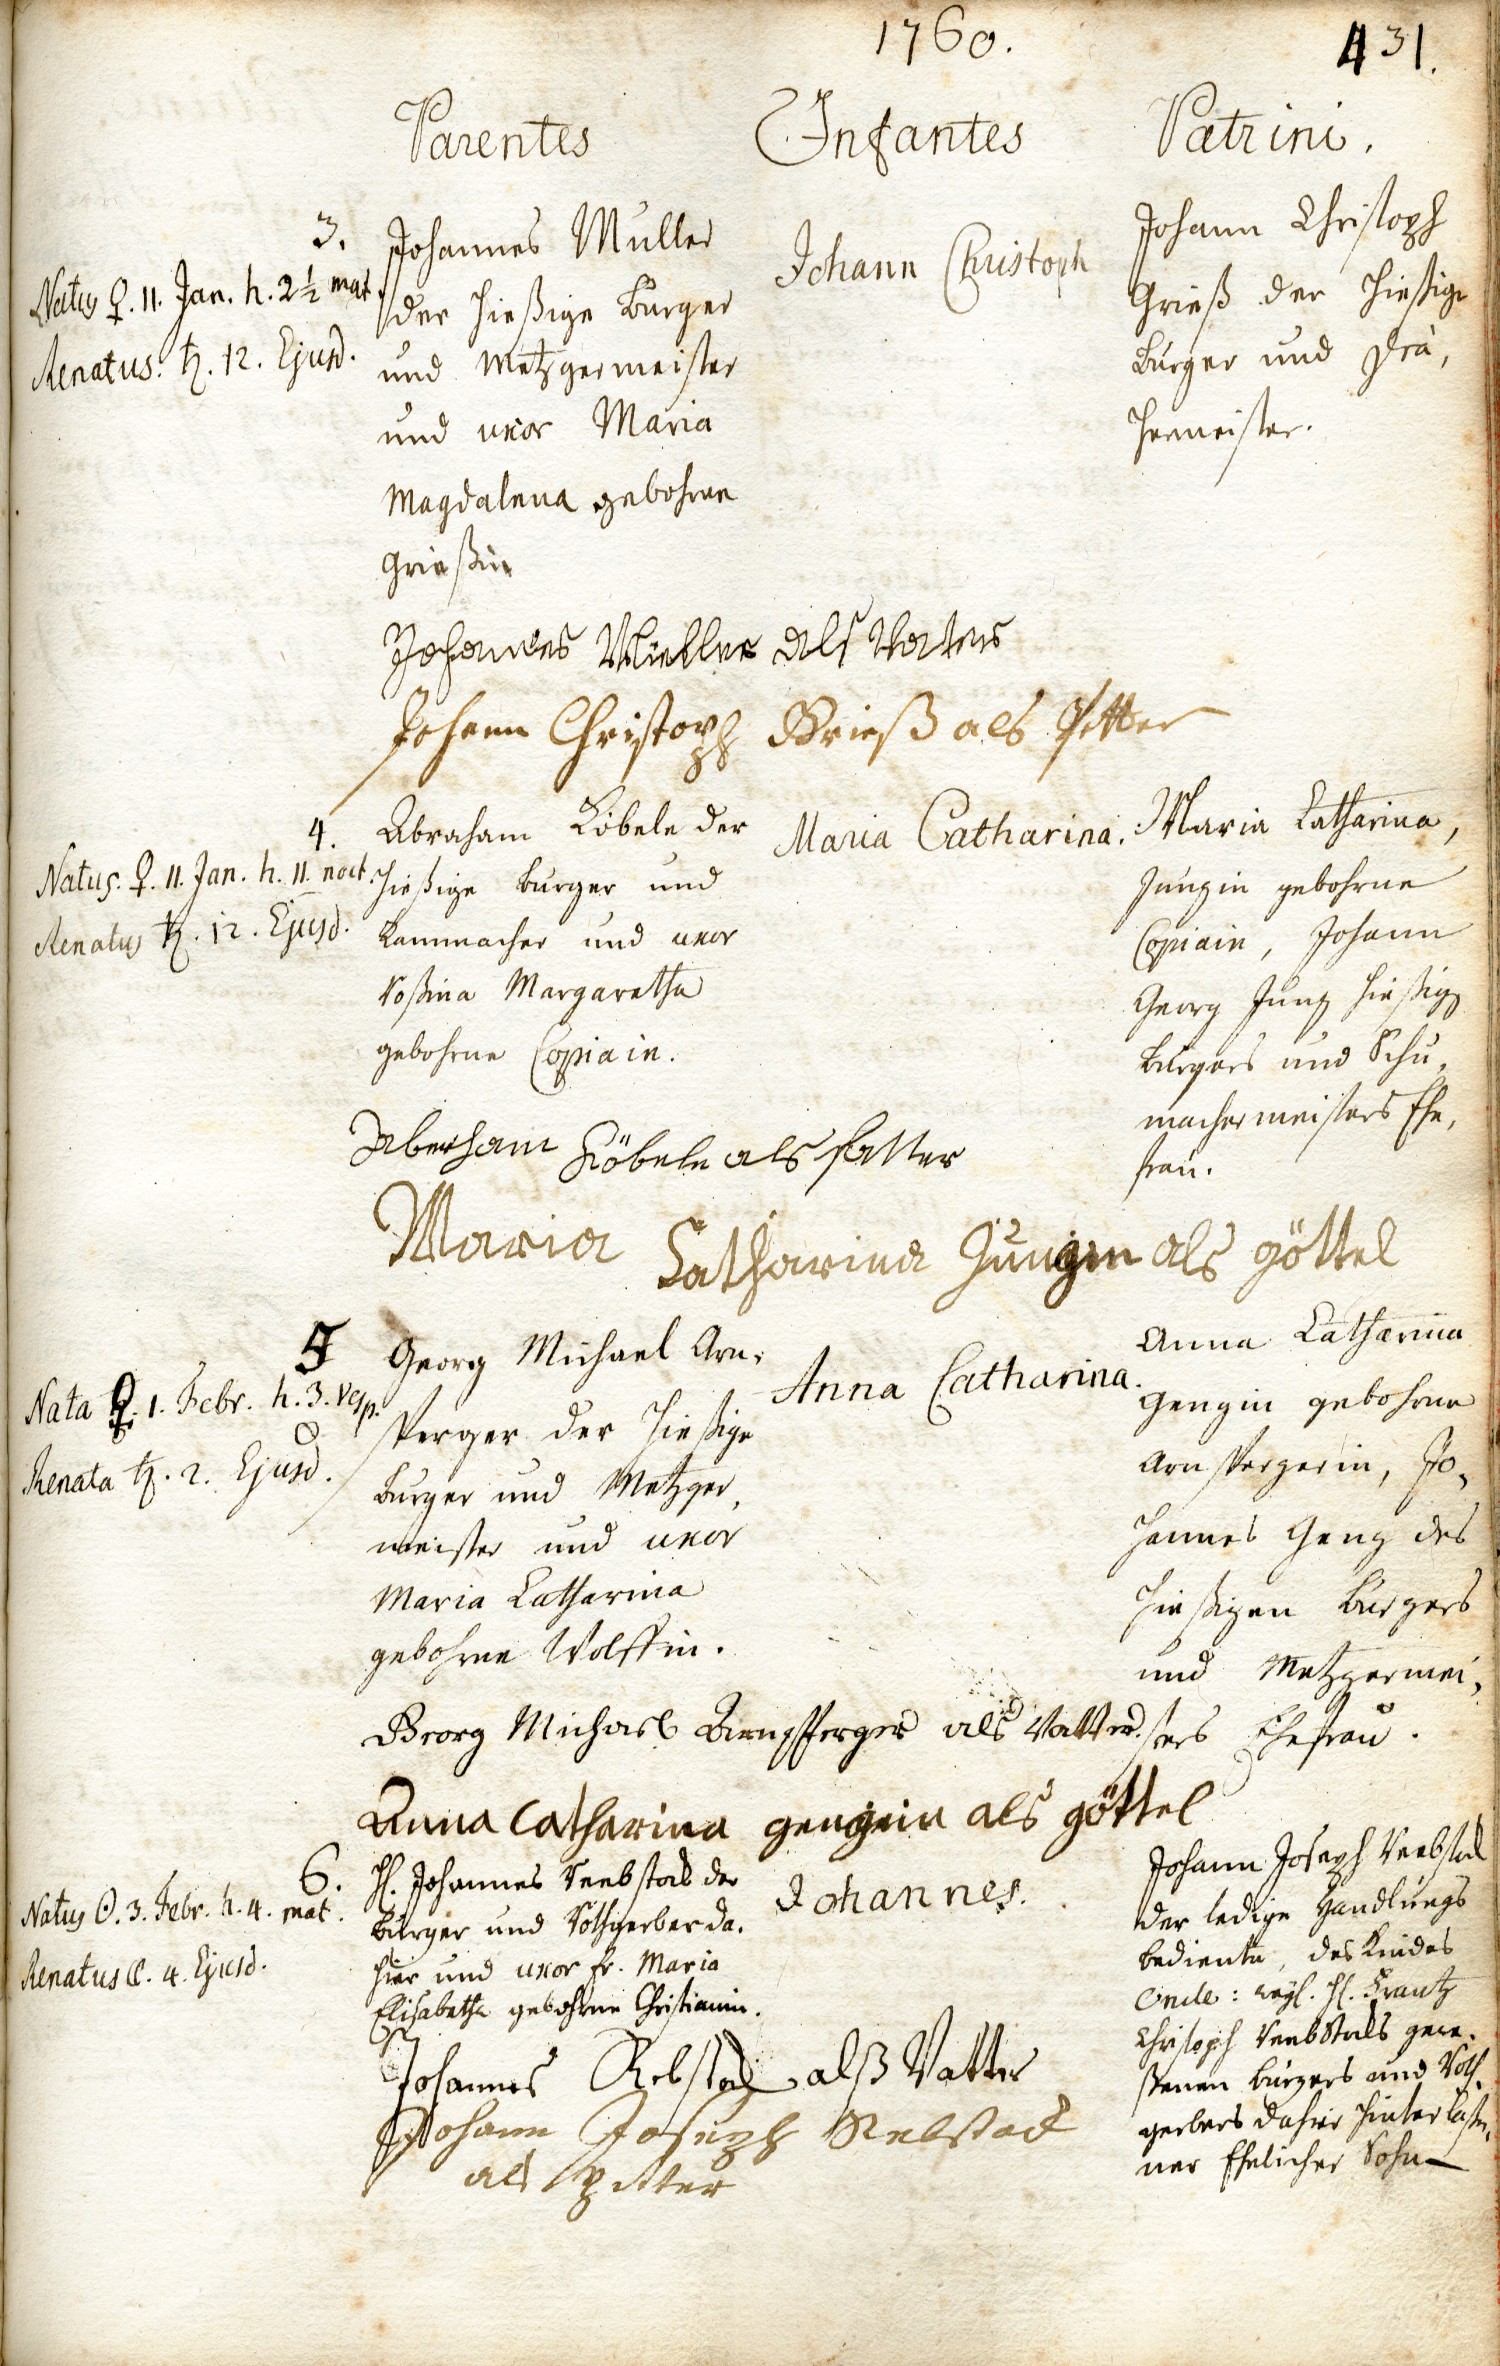 1760.
431.
Parentes
Infantes
Patrini.
3.
Natus ♀. 11. Jan. h. 2½ mat.
Renatus. ♄. 12. Ejusd.
Johannes Müller
der hießige Burger
und Metzgermeister
und uxor Maria
Magdalena gebohrne
Grießin
Johann Christoph
Johann Christoph
Grieß der hießige
Burger und Drä,
hermeister.
Johannes Müeller als Vatter
Johann Christoph Grieß als Pfetter
4.
Natus. ♀. 11. Jan. h. 11. noct.
Renatus ♄. 12. Ejusd.
Abraham Löbele der
hießige burger und
Kammacher und uxor
Roßina Margaretha
gebohrne Copiain.
Maria Catharina.
Maria Catharina,
Jungin gebohrne
Copiain, Johann
Georg Jung hießig
burgers und Schu,
machermeisters Ehe,
frau.
Aberham Löbele als fatter
Maria Catharina Jungin als göttel
5
Nata ♀. 1. Febr. h. 3. vesp.
Renata ♄. 2. Ejusd.
Georg Michael Arn,
sperger der hießige
Burger und Metzger,
meister und uxor
Maria Catharina
gebohrne Wolffin.
Anna Catharina.
Anna Catharina
Gengin gebohrne
Arnspergerin, Jo,
hannes Geng des
hießigen burgers
und Metzgermei,
sters Ehefrau.
Georg Michael Arnsperger als Vatter.
Anna Catharina gengin als göttel
6.
Natus ☉. 3. Febr. h. 4. mat.
Renatus ☾. 4. Ejusd.
H. Johannes Reebstock der
burger und Rothgerber da,
hier und uxor fr. Maria
Elisabetha gebohrne Christianin.
Johannes.
Johann Joseph Reebstock
der ledige Handlungs
bediente, des Kindes
Oncle: weyl. H. Frantz
Christoph Reebstocks gewe,
ßenen burgers und Roth,
gerbers dahier hinterlaße,
ner Ehelicher Sohn
Johannes Rebstock alß Vatter
Johann Joseph Rebstock
als Pfetter